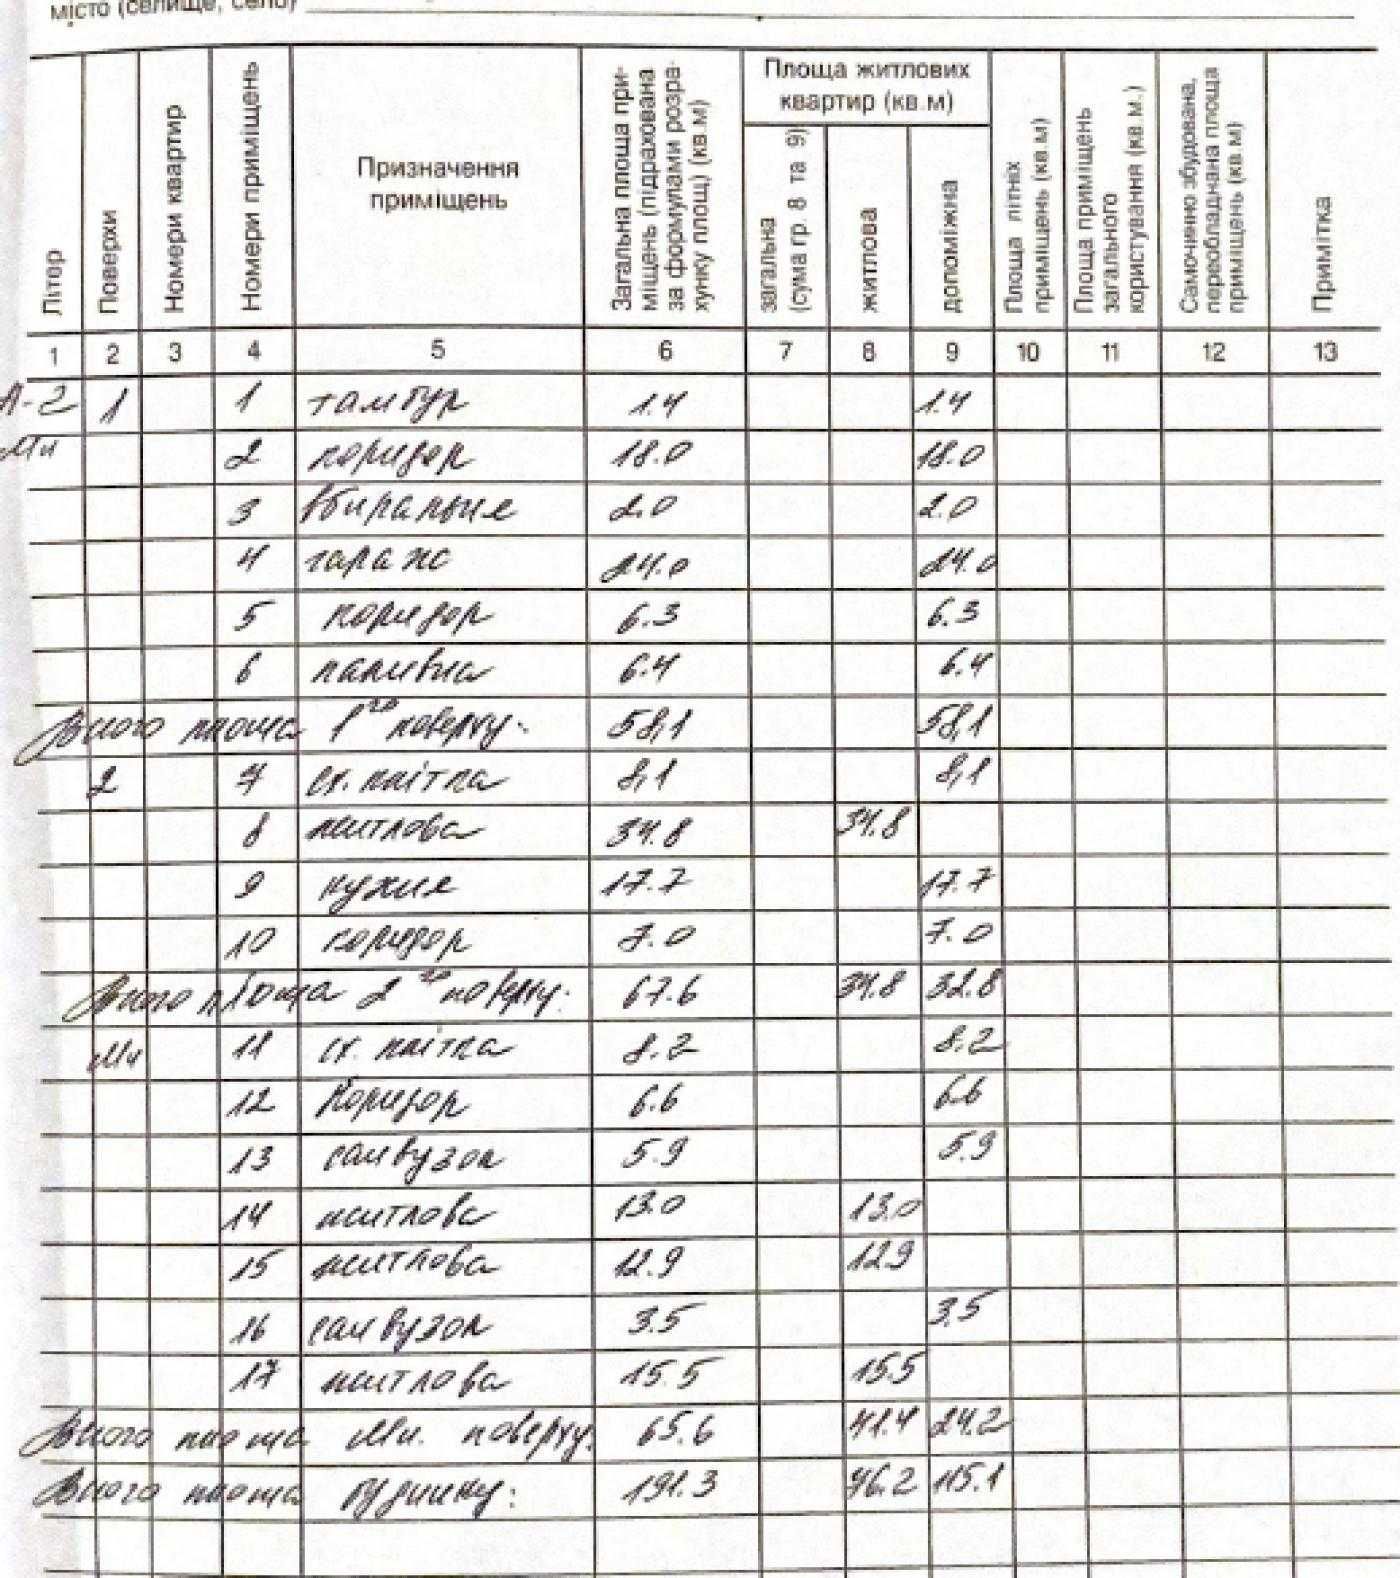 місто (селище, село)
Літер
Поверхи
Номери квартир
Номери приміщень
Призначення приміщень
Загальна площа приміщень (підрахована за формулами розрахунку площ) (кв.м)
Площа житлових квартир (кв.м)
загальна (сума гр. 8 та 9)
житлова
допоміжна
Площа літніх приміщень (кв.м)
Площа приміщень загального користування (кв.м.)
Самочинно збудована, переобладнана площа приміщень (кв.м)
Примітка
1 2 3 4 5 6 7 8 9 10 11 12 13
А-2 1 1 тамбур 1.4 1.4
Мн 2 коридор 18.0 18.0
3 вбиральня 2.0 2.0
4 гараж 24.0 24.0
5 коридор 6.3 6.3
6 паливна 6.4 6.4
Всього площа 1го поверху: 58,1 58,1
2 7 сх. клітка 8,1 8,1
8 житлова 34.8 34.8
9 кухня 17.7 17.7
10 коридор 7.0 7.0
Всього площа 2го поверху: 67.6 34.8 32.8
Мн 11 сх. клітка 8.2 8.2
12 Коридор 6.6 6.6
13 санвузол 5.9 5.9
14 житлова 13.0 13.0
15 житлова 12.9 12.9
16 санвузол 3.5 3.5
17 житлова 15.5 15.5
Всього площа Мн. поверху: 65.6 41.4 24.2
Всього площа будинку: 191.3 76.2 115.1